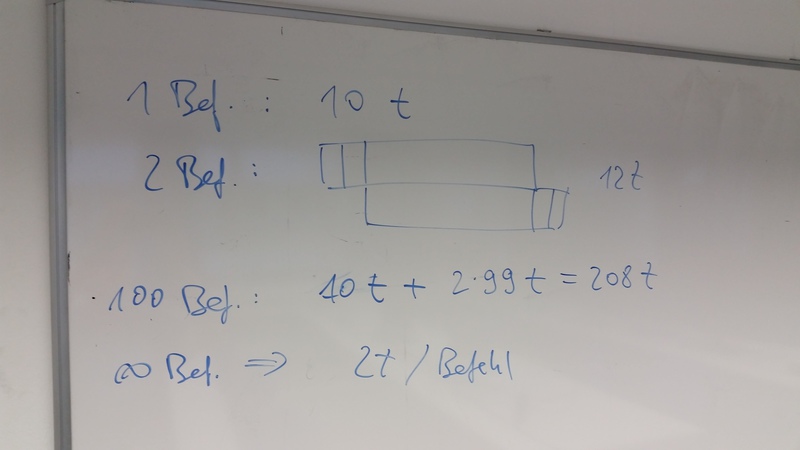 1 Bef. : 10 t
2 Bef. : 12t
100 Bef. : 10 t + 2·99 t = 208 t
∞ Bef. ⇒ 2t / Befehl